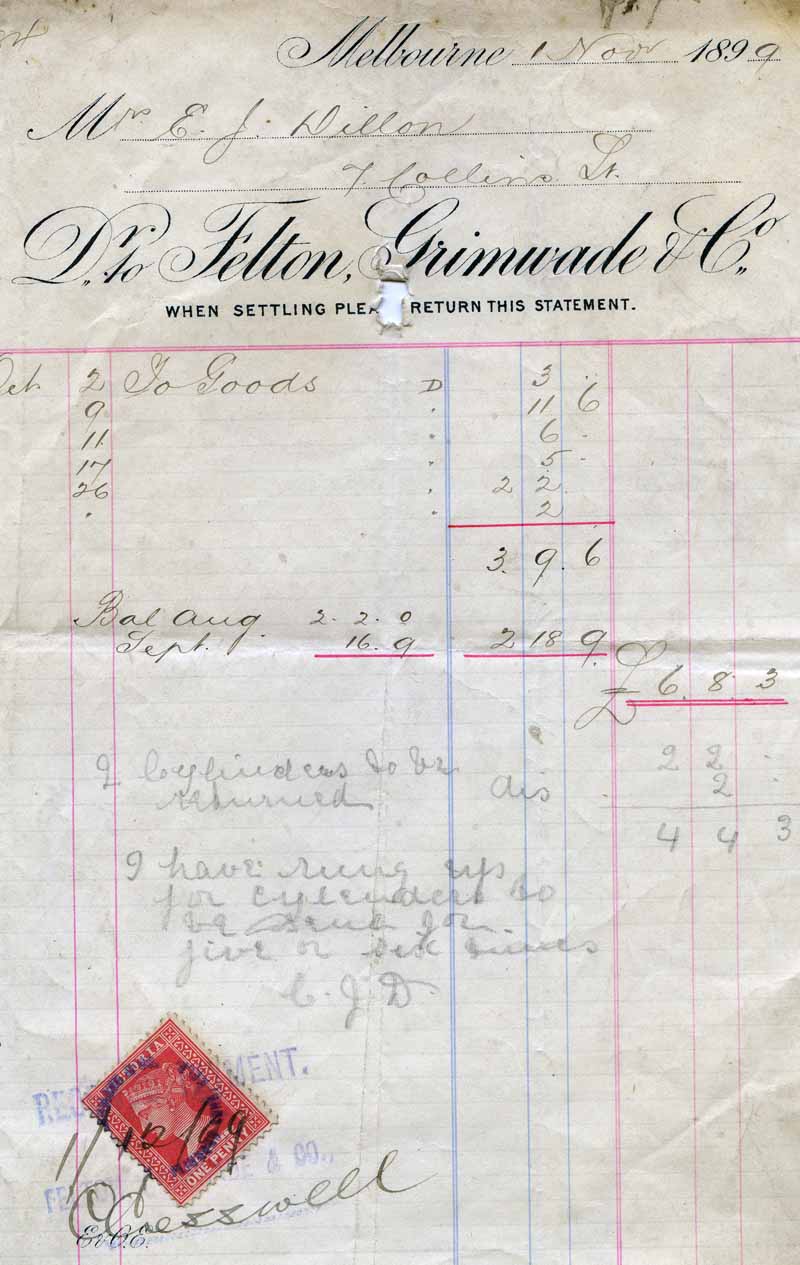 Melbourne 1 Nov 1899
Mr E. J. Dillon
7 Collins St.
Dr. to Felton, Grimwade & Co.
WHEN SETTLING PLEA RETURN THIS STATEMENT.
Oct. 2 To Goods D 3 .
9 . 11 6
11 . 6 .
17 . 5 .
26 . 2 2 .
. . 2
3. 9. 6
Bal Aug 2. 2. 0
Sept. 16. 9 2 18 9.
£ 6. 8. 3
2 Cylinders to be 2 2 .
returned dis . 2 .
4 4 3
I have rung up
for cylenders to
be send for
five or six times
E. J. D
REC MENT.
VICTORIA
1/12/99
ONE PENNY
FE DE & CO.,
Cresswell
E. & O. E.